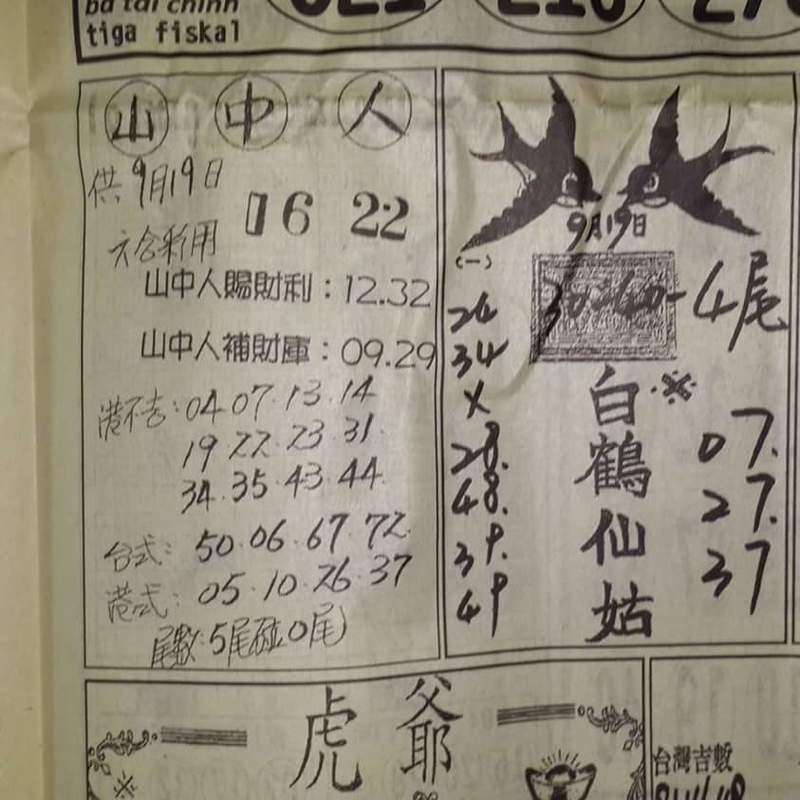 ba tai chinh
tiga fiskal
山中人
供9月19日
六合彩用
16 22
山中人賜財利：12.32
山中人補財庫：09.29
港不吉：04.07.13.14
19.22.23.31
34.35.43.44
台式：50.06.67.72
港式：05.10.26.37
尾數：5尾碰0尾
9月19日
(一)
30-40-4尾
24
34
X
28.
48.
39.
49
白鶴仙姑
07.
27.
37
虎爺
台灣吉數